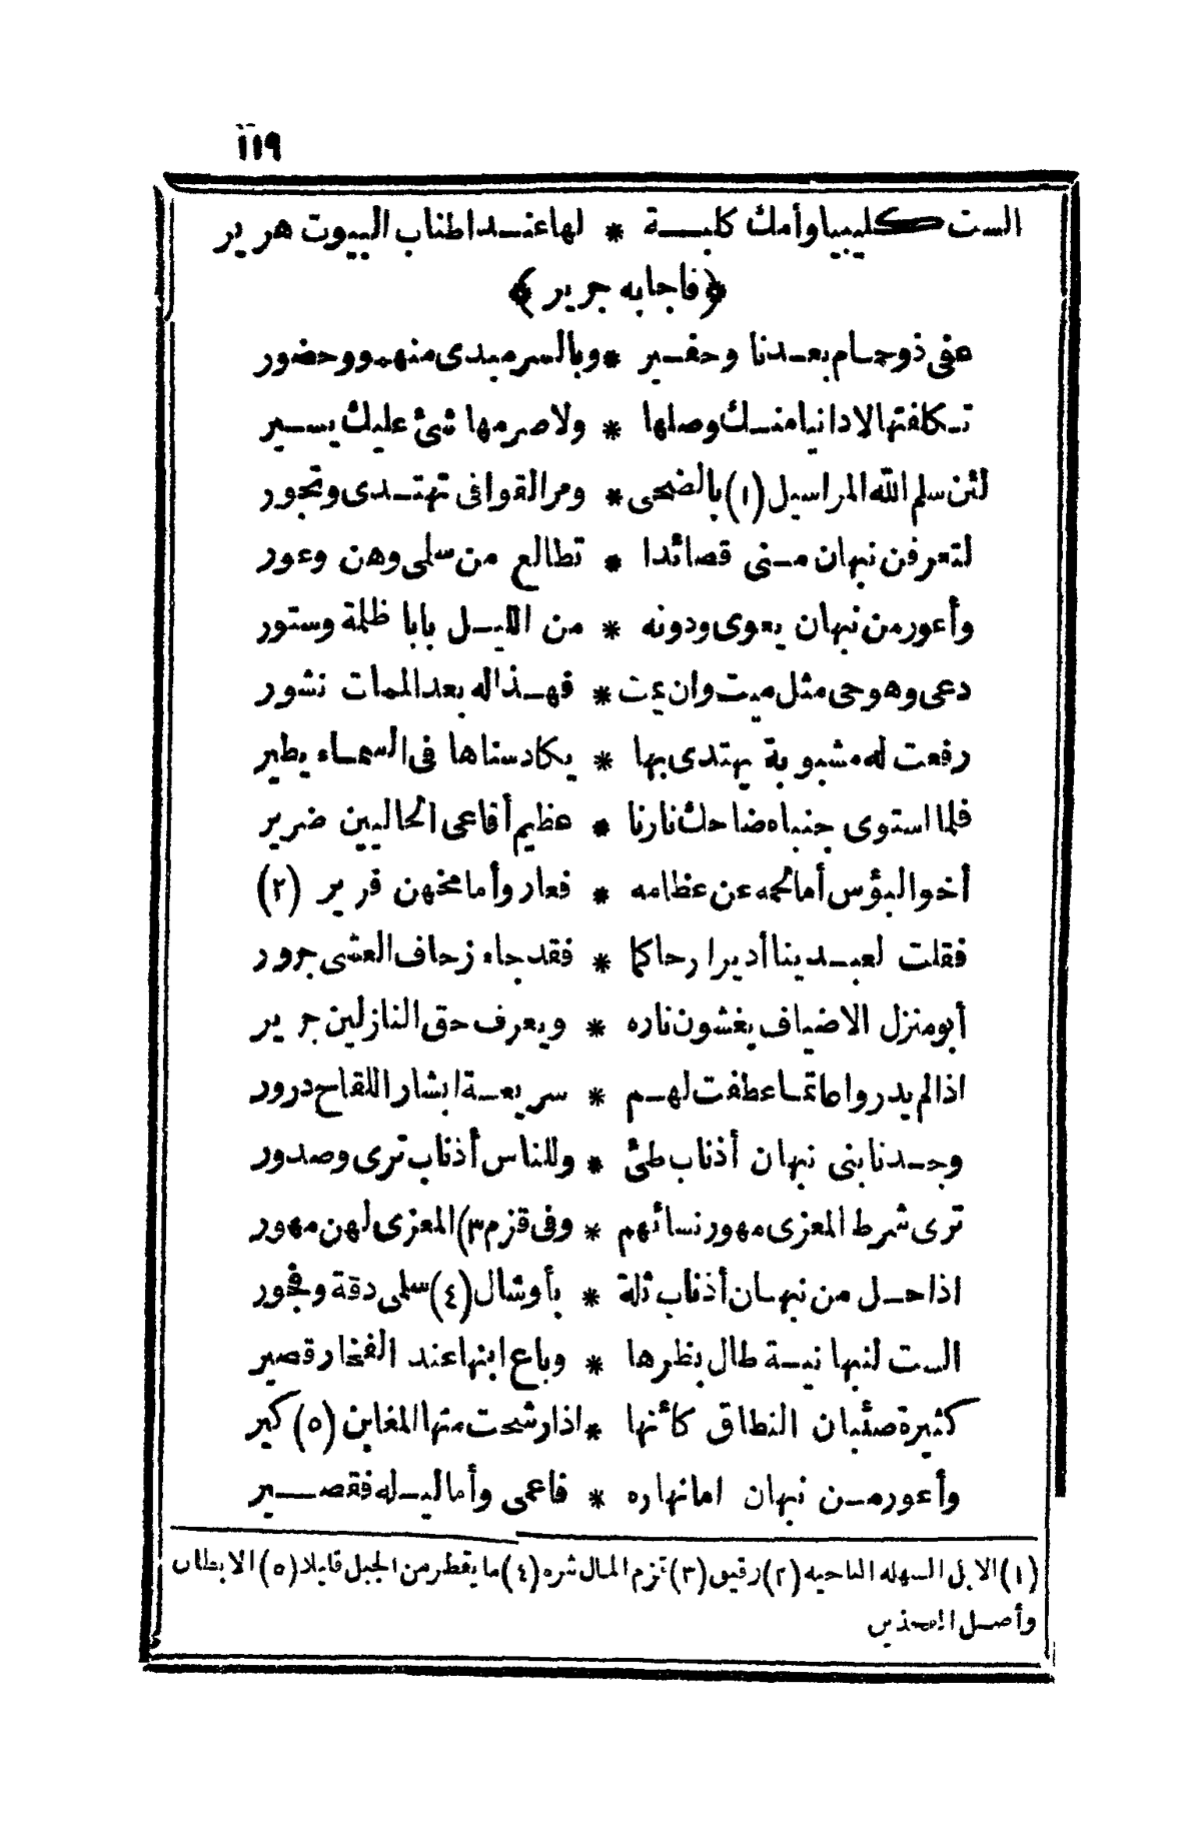 ١١٩
الست كليبيا وأمك كلبة * لها عند اطناب البيوت هرير
﴿فاجابه جرير﴾
عفى ذو حمام بعدنا وحفير * وبالسر مبدى منهم وحضور
تكلفتها لا دانيا منك وصلها * ولا صرمها شئ عليك يسير
لئن سلم الله المراسيل (١) بالضحى * ومر القوافى تهتدى وتجور
لتعرفن نبهان منى قصائدا * تطالع من سلمى وهن وعور
وأعور من نبهان يعوى ودونه * من الليل بابا ظلمة وستور
دعى وهو حى مثل ميت وان يمت * فهذا له بعد الممات نشور
رفعت له مشبوبة يهتدى بها * يكاد سناها فى السماء يطير
فلما استوى جنباه ضاحك نارنا * عظيم أفاعى الحالبين ضرير
أخو البؤس أما لحمه عن عظامه * فعار وأما مخهن فرير (٢)
فقلت لعبدينا أديرا رحاكما * فقد جاء زحاف العشى جرور
أبو منزل الاضياف يغشون ناره * ويعرف حق النازلين جرير
اذا لم يدروا عاتما عطفت لهم * سريعة ابشار اللقاح درور
وجدنا بنى نبهان أذناب طئ * وللناس أذناب ترى وصدور
ترى شرط المعزى مهور نسائهم * وفى قزم ٣) المعزى لهن مهور
اذا حل من نبهان أذناب ثلة * بأوشال (٤) سلمى دقة وفجور
الست لنبهانية طال بظرها * وباع ابنها عند الفخار قصير
كثيرة صئبان النطاق كأنها * اذا رشحت منها المغابن (٥) كير
وأعور من نبهان اما نهاره * فاعمى وأما ليله فقصير
(١) الابل السهله الناحيه (٢) رقيق (٣) قزم المال شره (٤) ما يقطر من الجبل قليلا (٥) الابطان
وأصل الفخذين